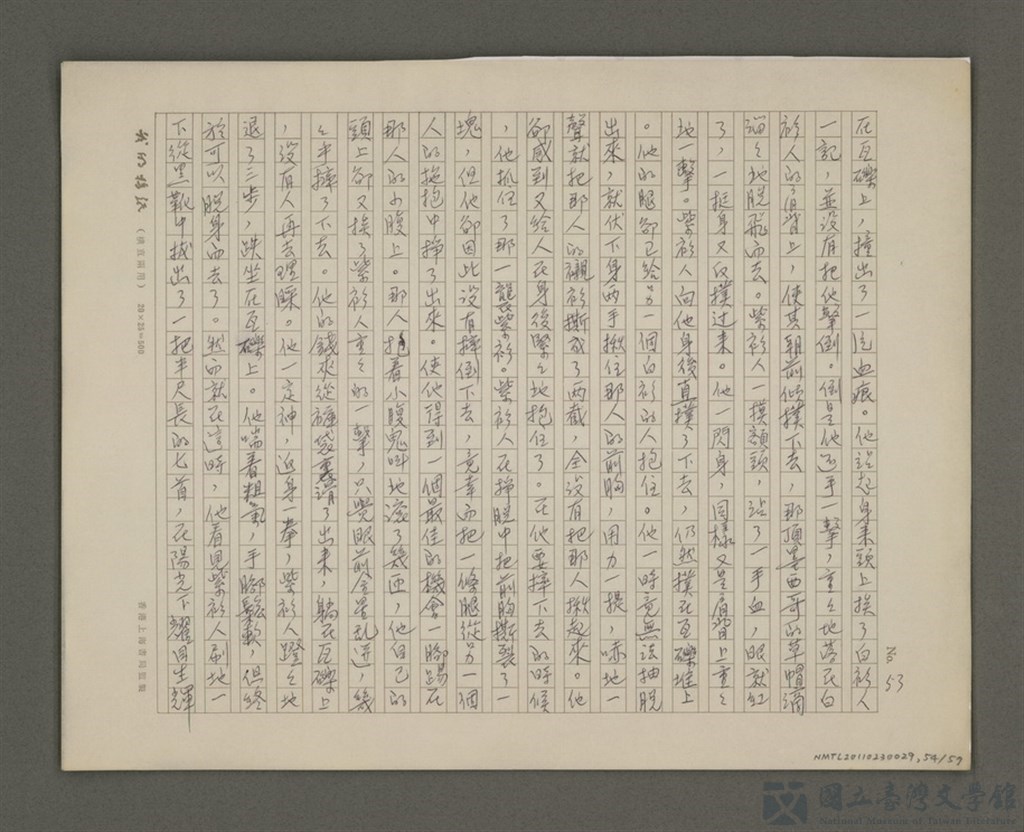 在瓦礫上，撞出了一片血痕。他站起身來頭上挨了白衫人
一記，並沒有把他擊倒。倒是他返手一擊，重々地落在白
衫人的肩背上，使其朝前傾撲下去，那頂墨西哥的草帽滴
溜々地脫飛而去。紫衫人一摸額頭，沾了一手血，眼就紅
了，一挺身又反撲过来。他一閃身，同樣又是肩背上重々
地一擊。紫衫人向他身後直撲了下去，仍然撲在瓦礫堆上
。他的腿卻已給另一個白衫的人抱住。他一時竟無法抽脫
出來，就伏下身兩手揪住那人的前胸，用力一提，嘶地一
聲就把那人的襯衫撕成了兩截，全沒有把那人揪起來。他
卻感到又給人在身後緊々地抱住了。在他要摔下去的時候
，他抓住了那一襲紫衫。紫衫人在掙脫中把前胸撕裂了一
塊，但他卻因此沒有摔倒下去，竟幸而把一條腿從另一個
人的拖抱中掙了出來。使他得到一個最佳的機會一腳踢在
那人的小腹上。那人抱着小腹鬼叫地滾了幾匝，他自己的
頭上卻又挨了紫衫人重々的一擊，只覺眼前金星乱迸，幾
乎摔了下去。他的錢夾從褲袋裏滑了出來，躺在瓦礫上
，沒有人再去理睬。他一定神，迫身一拳，紫衫人蹬々地
退了三步，跌坐在瓦礫上。他喘着粗氣，手腳鬆軟，但終
於可以脫身而去了。然而就在這時，他看見紫衫人刷地一
下從黑靴中拔出了一把半尺長的匕首，在陽光下耀目生輝
（橫直兩用） 20×25=500
香港上海書局監製
53
NMTL20110230029, 54/59
國立臺灣文學館
National Museum of Taiwan Literature